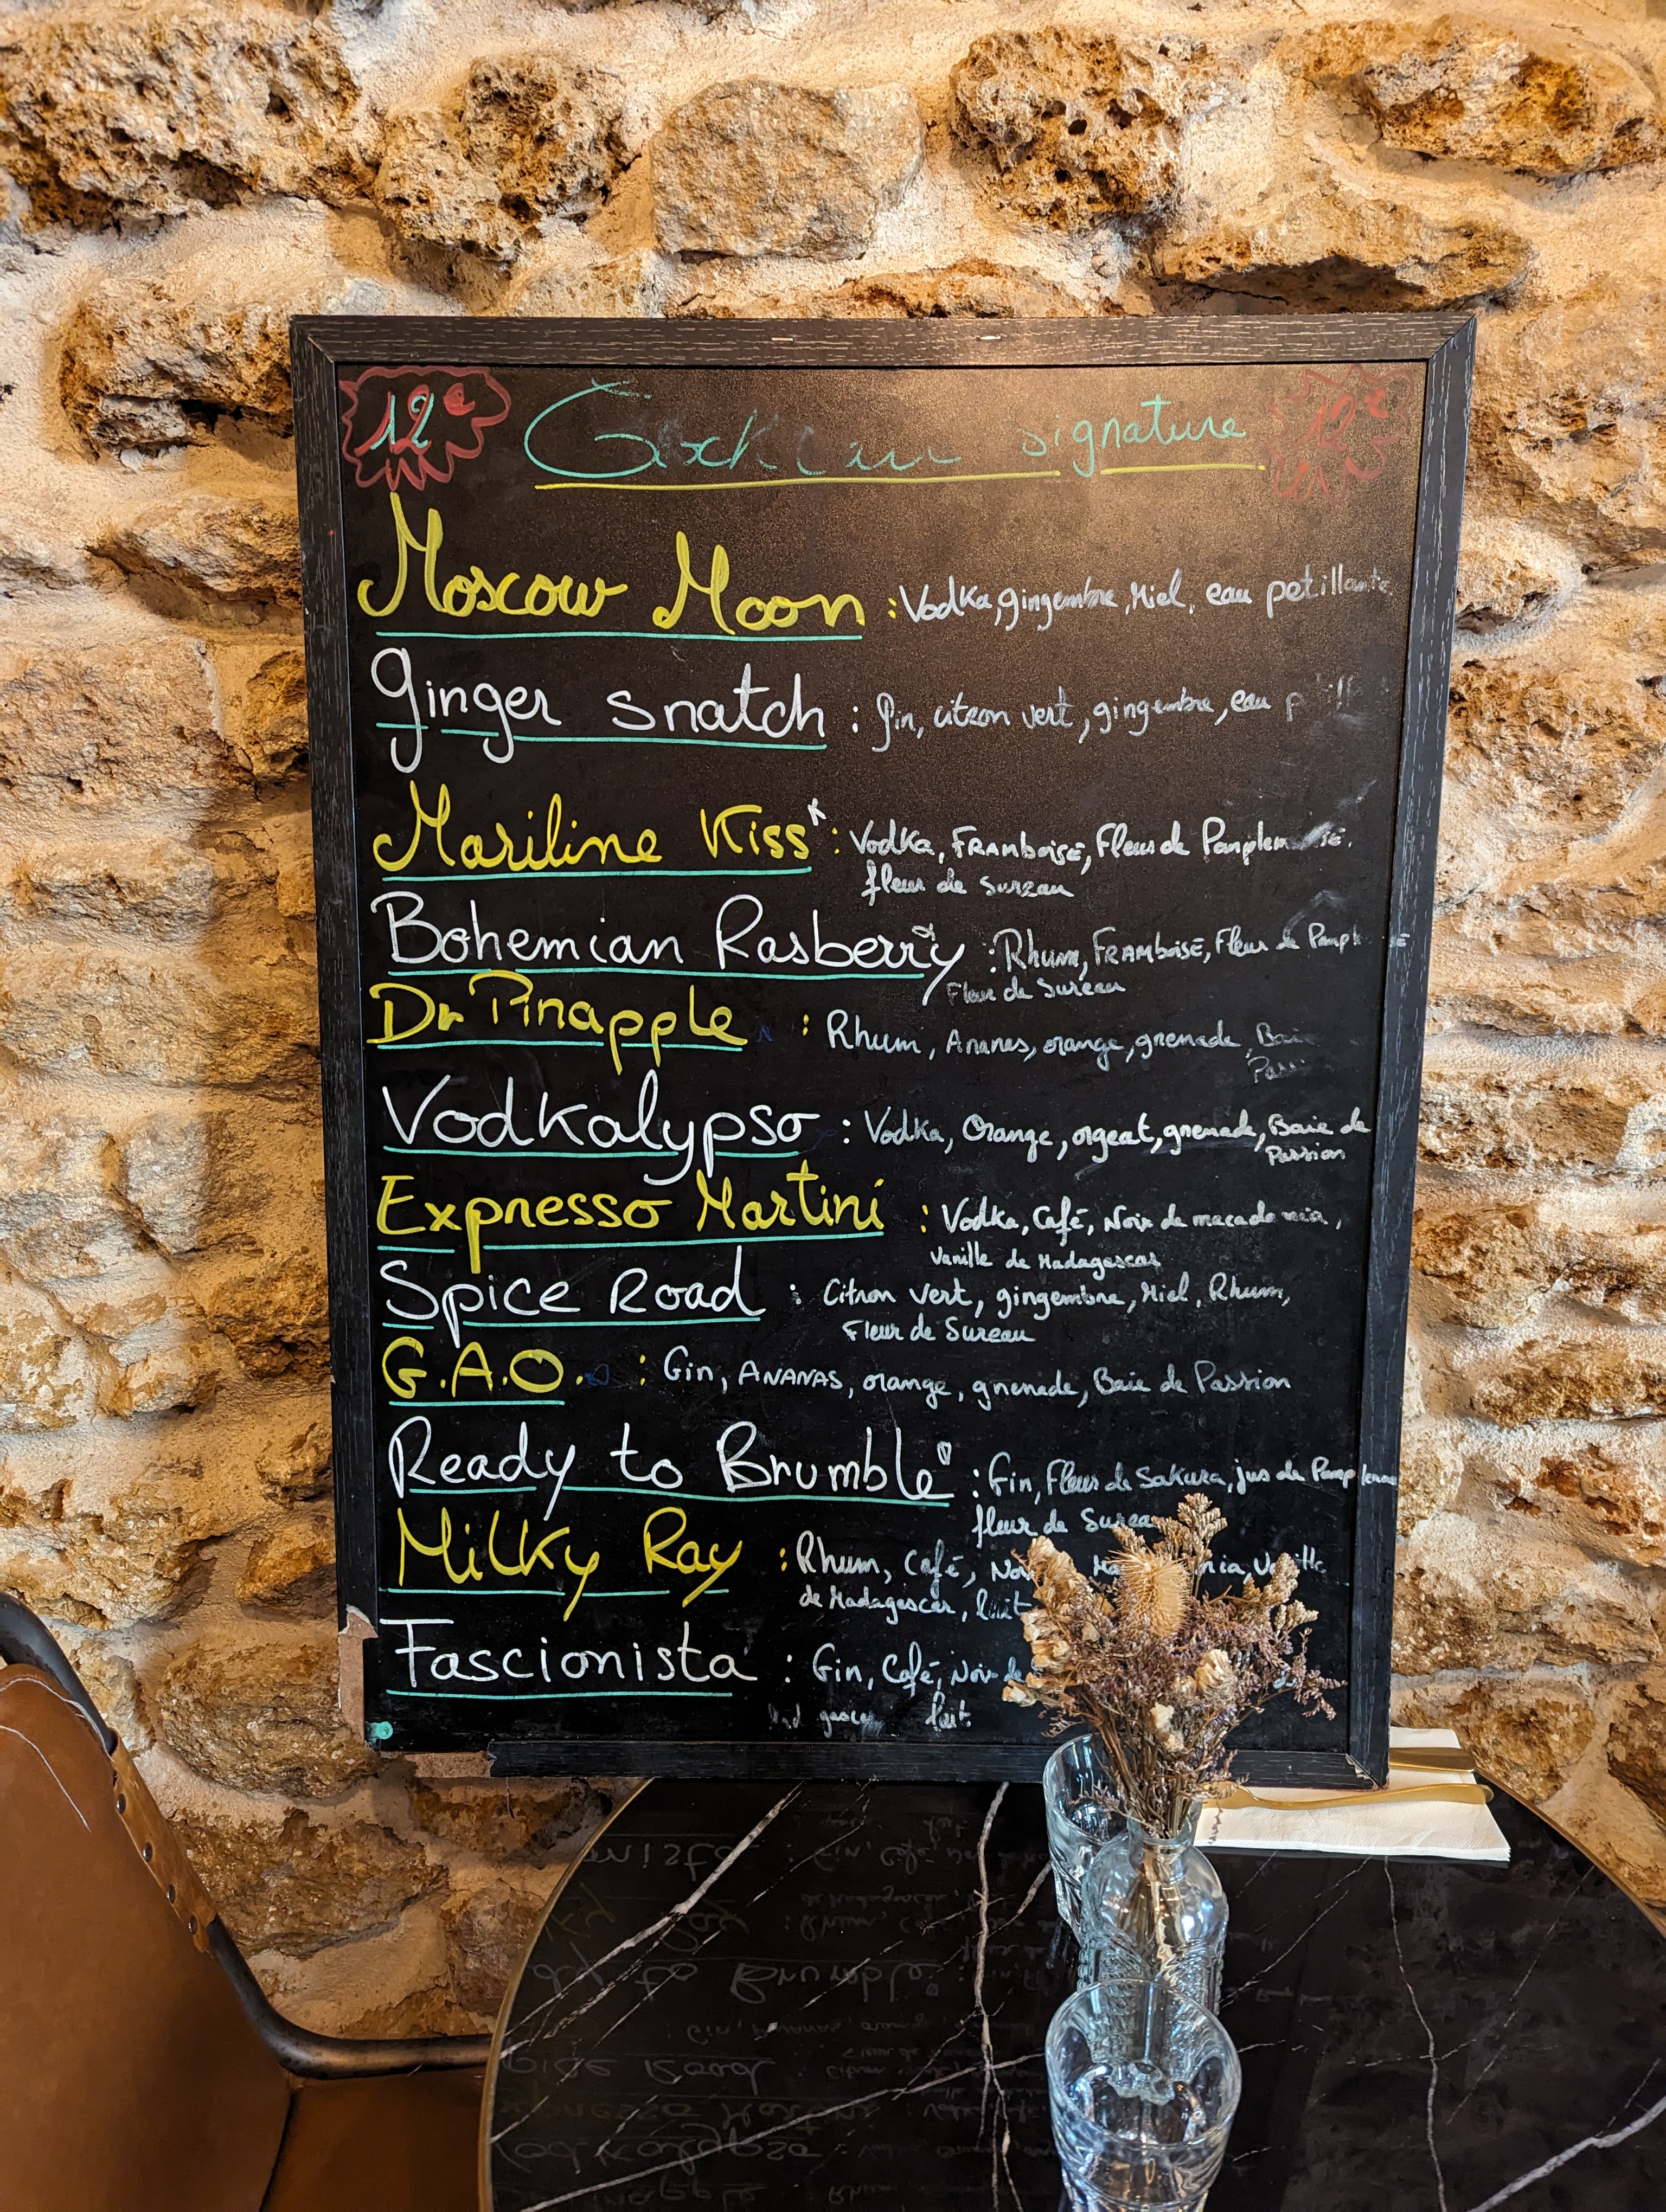 12€ signature 12€
Moscow Moon : Vodka, gingembre, Miel, eau petillante
Ginger snatch : Gin, citron vert, gingembre, eau
Mariline Kiss : Vodka, FRAMBOISE, Fleur de
fleur de Surzau
Bohemian Rasberry : Rhum, FRAMBOISE, Fleur de
Fleur de Sureau
Dr Pinapple : Rhum, Ananas, orange, grenade, Baie
Vodkalypso : Vodka, Orange, orgeat, grenade, Baie de
Passion
Expresso Martini : Vodka, Café, Noix de macadamia,
Vanille de Madagascar
Spice Road : Citron vert, gingembre, Miel, Rhum,
Fleur de Sureau
G.A.O. : Gin, ANANAS, orange, grenade, Baie de Passion
Ready to Brumble : Gin, Fleur de Sakura, jus de
fleur de
Milky Ray : Rhum, Café,
de Madagascar, lait
Fascionista : Gin, Café, Noix de
lait